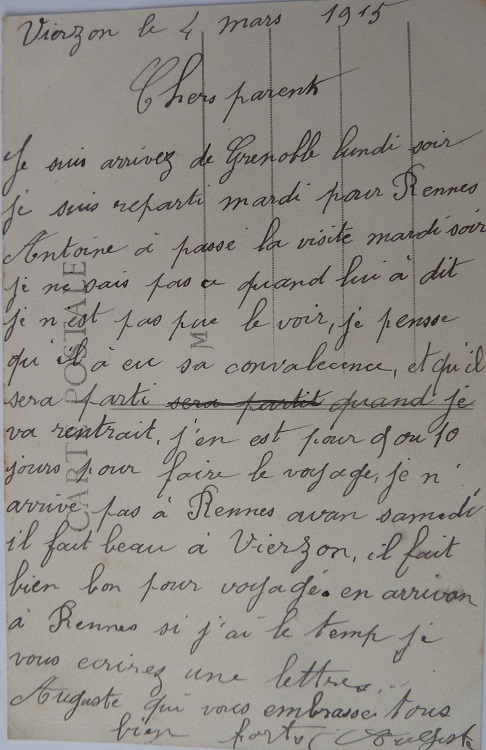 Vierzon le 4 mars 1915
Chers parent
Je suis arrivez de Grenoble lundi soir
je suis reparti mardi pour Rennes
Antoine à passé la visite mardi soir
je ne sais pas quand lui à dit
je n est pas pue le voir, je pensse
qu'il à eu sa convalecence, et qu'il
sera parti sera partit quand je
va rentrait, j'en est pour 9 ou 10
jours pour faire le voyage, je n'
arrive pas à Rennes avan samedi
il fait beau à Vierzon, il fait
bien bon pour voyagé. en arrivan
à Rennes si j'ai le temp je
vous ecrirez une lettres...
Auguste qui vous embrasse tous
bien forts Auguste
CARTE POSTALE
M